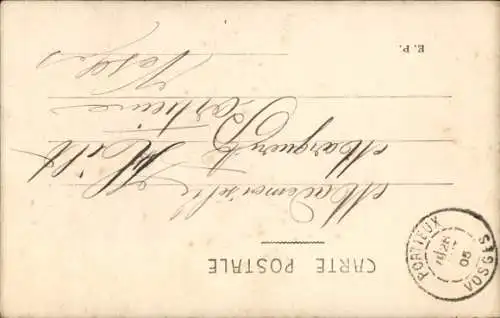 CARTE POSTALE
Mademoiselle
Marguerite
Portieux
Vosges
E. P.
PORTIEUX
VOSGES
05